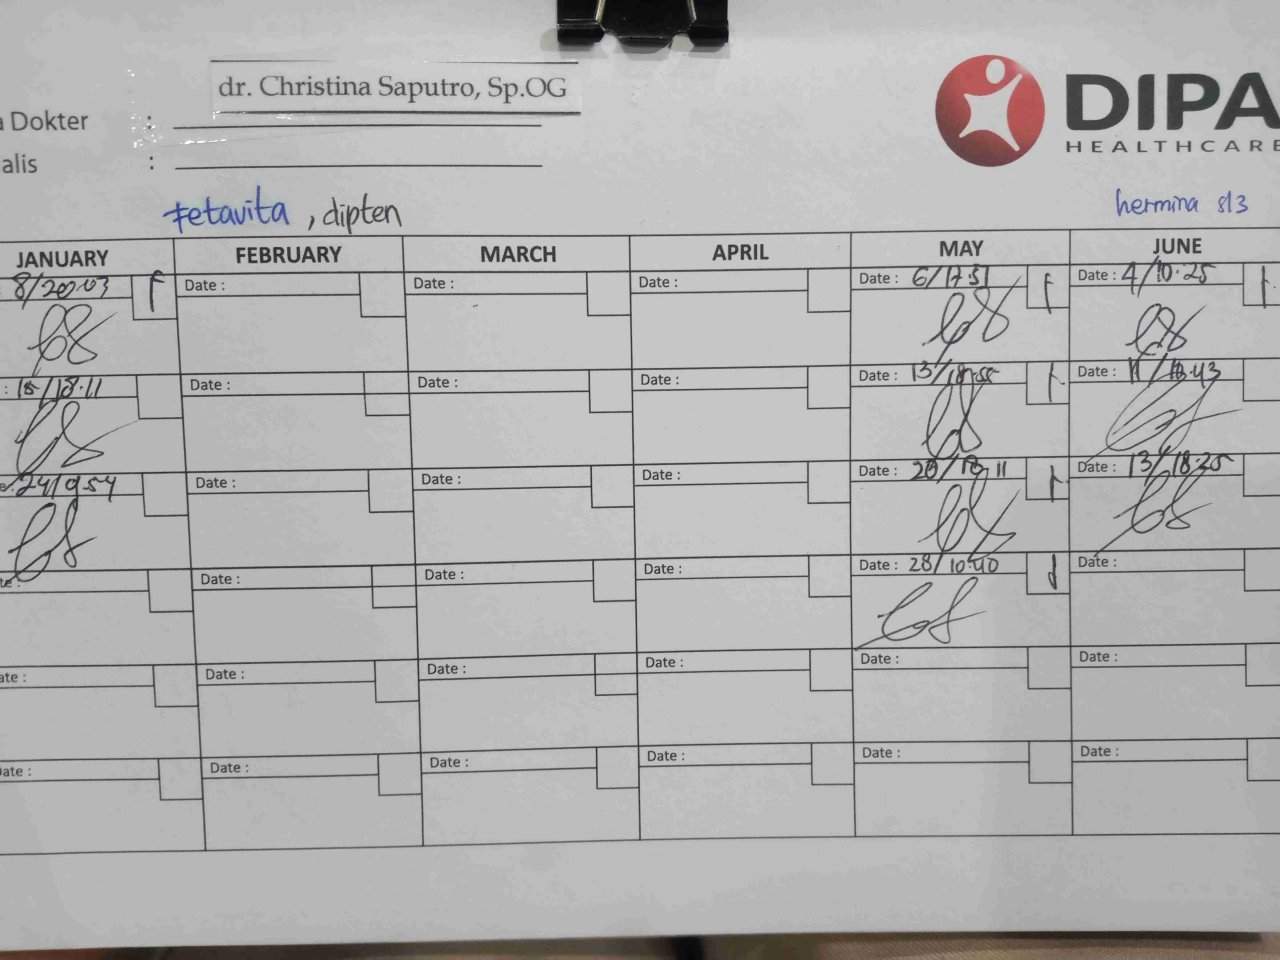 dr. Christina Saputro, Sp.OG
a Dokter :
alis :
DIPA
HEALTHCARE
Fetavita , dipten
hermina s13
JANUARY FEBRUARY MARCH APRIL MAY JUNE
8/20.03 Date : Date : Date : Date : 6/17.51 Date : 4/10.25
: 15/18.11 Date : Date : Date : Date : 13/18.55 Date : 11/18.43
e: 24/9.54 Date : Date : Date : Date : 20/19.11 Date : 13/18.25
te : Date : Date : Date : Date : 28/10.40 Date :
ate : Date : Date : Date : Date : Date :
Date : Date : Date : Date : Date : Date :